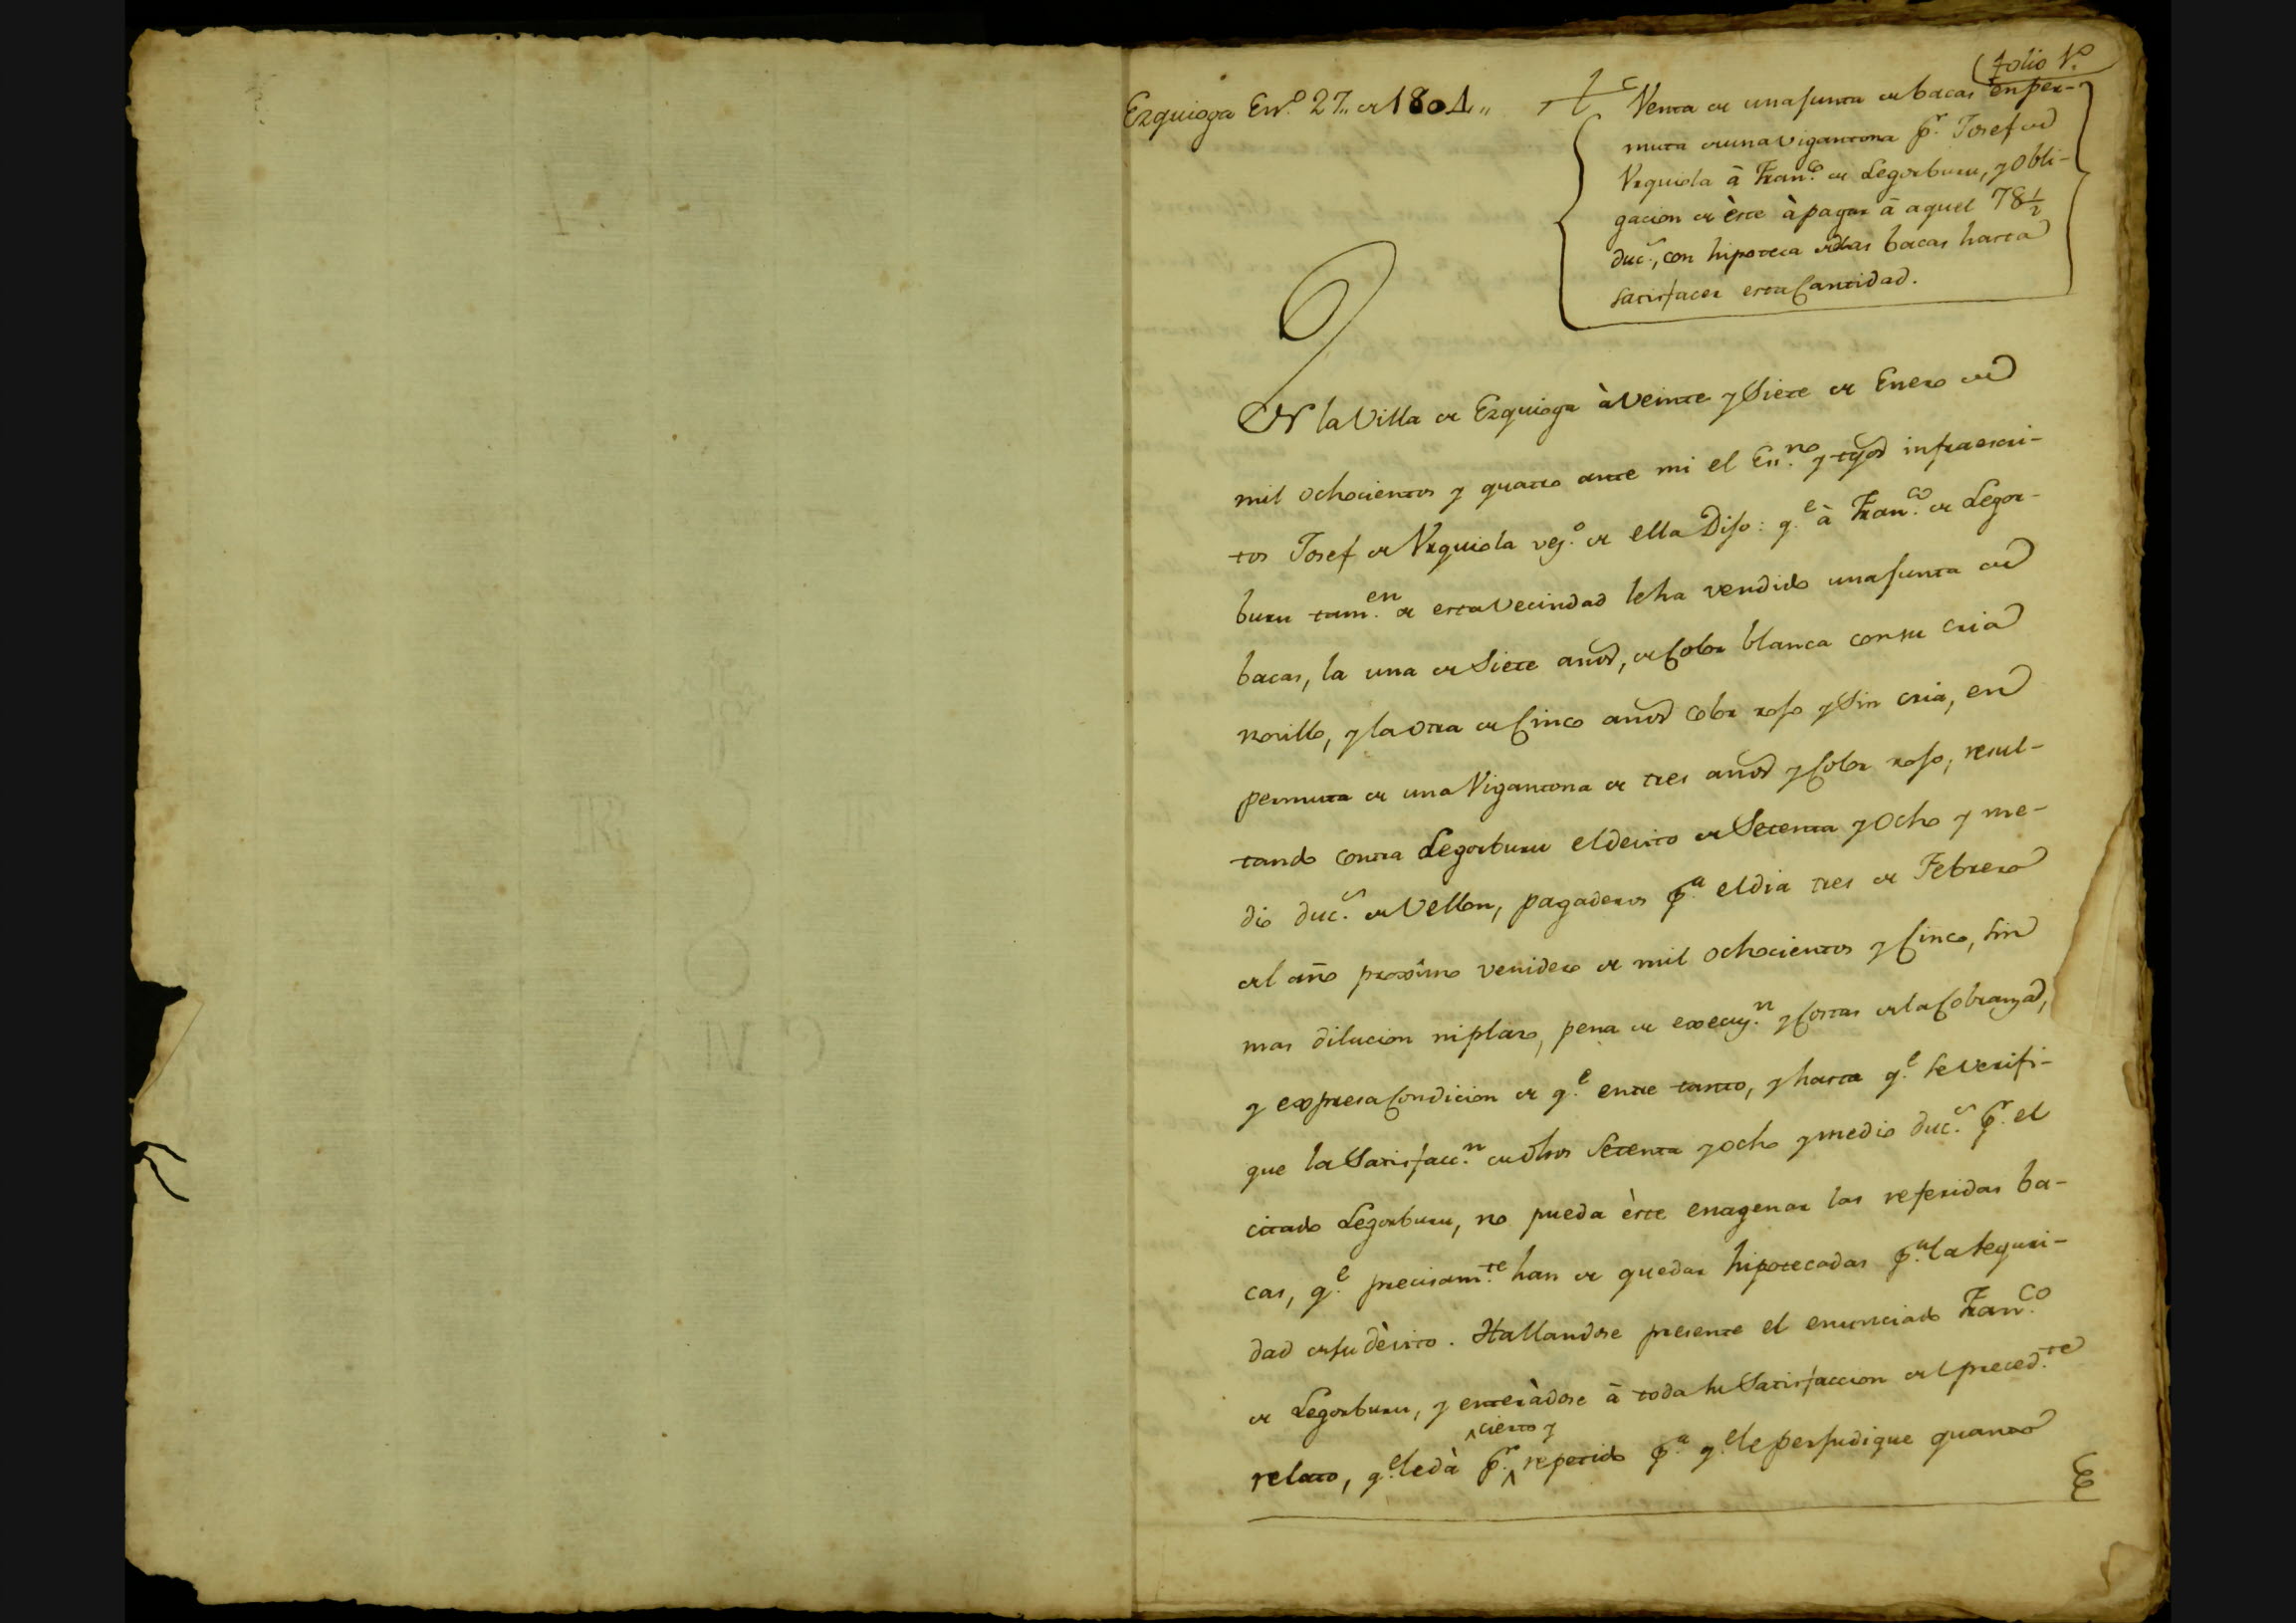 folio 1.º
Ezquioga En.º 27,, de 1804,,
Venta de una junta de bacas en per-
muta de una vigantona p.r Josef de
Urquiola â Fran.co de Legorburu, y obli-
gacion de èste à pagar â aquel 78 1/2
duc.s, con hipoteca de dhas bacas hasta
satisfacer esta Cantidad.
En la Villa de Ezquioga à veinte y Siete de Enero de
mil ochocientos y quatro ante mi el Es.no y tgos infraescri-
tos Josef de Urquiola vez.o de ella Dijo: q.e â Fran.co de Legor-
buru tam.en de esta Vecindad le ha vendido una junta de
bacas, la una de Siete años, de Color blanca con su cria
novillo, y la otra de Cinco años color rojo y Sin cria, en
permuta de una Vigantona de tres años y Color rojo; resul-
tando contra Legorburu el devito de Setenta y Ocho y me-
dio duc.s de Vellon, pagaderos p.a el dia tres de Febrero
del año proximo venidero de mil ochocientos y Cinco, sin
mas dilucion ni plazo, pena de execuz.n y Costas de la Cobranza,
y expresa Condicion de q.e entre tanto, y hasta q.e se verifi-
que la Satisfacc.n de dhos Setenta y ocho y medio duc.s p.r el
citado Legorburu, no pueda èste enagenar las referidas ba-
cas, q.e precisam.te han de quedar hipotecadas p.a la seguri-
dad de su dèvito. Hallandose presente el enunciado Fran.co
de Legorburu, y enteràdose â toda su Satisfaccion del preced.te
relato, q.e le dà p.r cierto y repetido p.a q.e le perjudique quanto